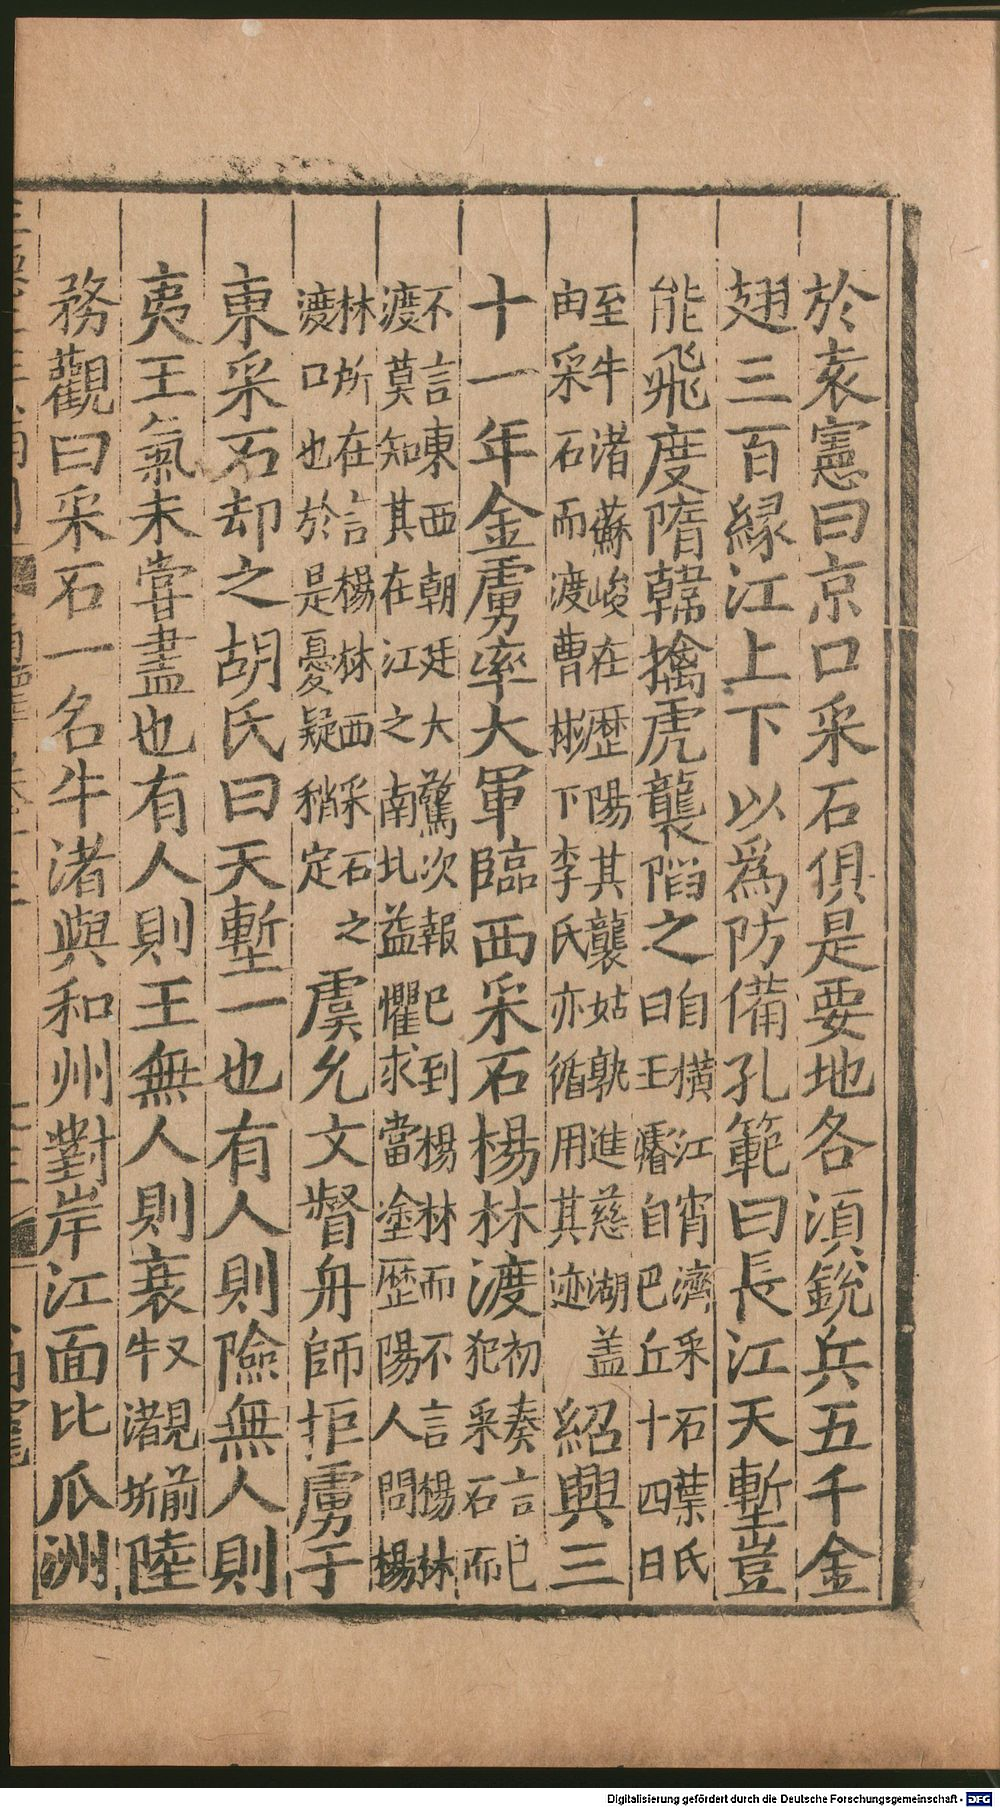 於袁憲曰京口采石俱是要地各湏銳兵五千金
翅三百縁江上下以爲防備孔範曰長江天塹豈
能飛度隋韓擒虎襲䧟之自橫江宵濟采石葉氏曰王濬自巴丘十四日
至牛渚蘇峻在歷陽其襲姑孰進慈湖盖由采石而渡曹彬下李氏亦循用其迹紹興三
十一年金虜率大軍臨西采石楊林渡初奏言已犯采石而
不言東西朝廷大驚次報已到楊林而不言楊林渡莫知其在江之南北益懼求當塗歴陽人問楊
林所在言楊林西采石之渡口也於是憂疑稍定虞允文督舟師拒虜于
東采石却之胡氏曰天塹一也有人則險無人則
夷王氣未嘗盡也有人則王無人則衰又見前牛渚圻陸
務觀曰采石一名牛渚與和州對岸江面比瓜洲
Digitalisierung gefördert durch die Deutsche Forschungsgemeinschaft - DFG